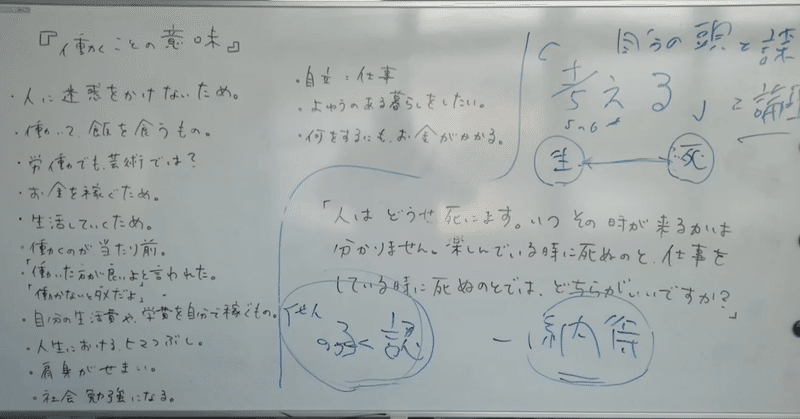 『働くことの意味』
・人に迷惑をかけないため。
・働いて、飯を食うもの。
・労働でも、芸術では?
・お金を稼ぐため。
・生活していくため。
・働くのが当たり前。
・「働いた方が良いよと言われた。
「働かないとダメだよ」
・自分の生活費や、学費を自分で稼ぐもの。
・人生における、ヒマつぶし。
・肩身がせまい。
・社会勉強になる。
・自立:仕事
・よゆうのある暮らしをしたい。
・何をするにも、お金がかかる。
自分の頭で
考える」
生
死
「人はどうせ死にます。いつその時が来るかは
分かりません。楽しんでいる時に死ぬのと、仕事を
している時に死ぬのとでは、どちらがいいですか?」
納得